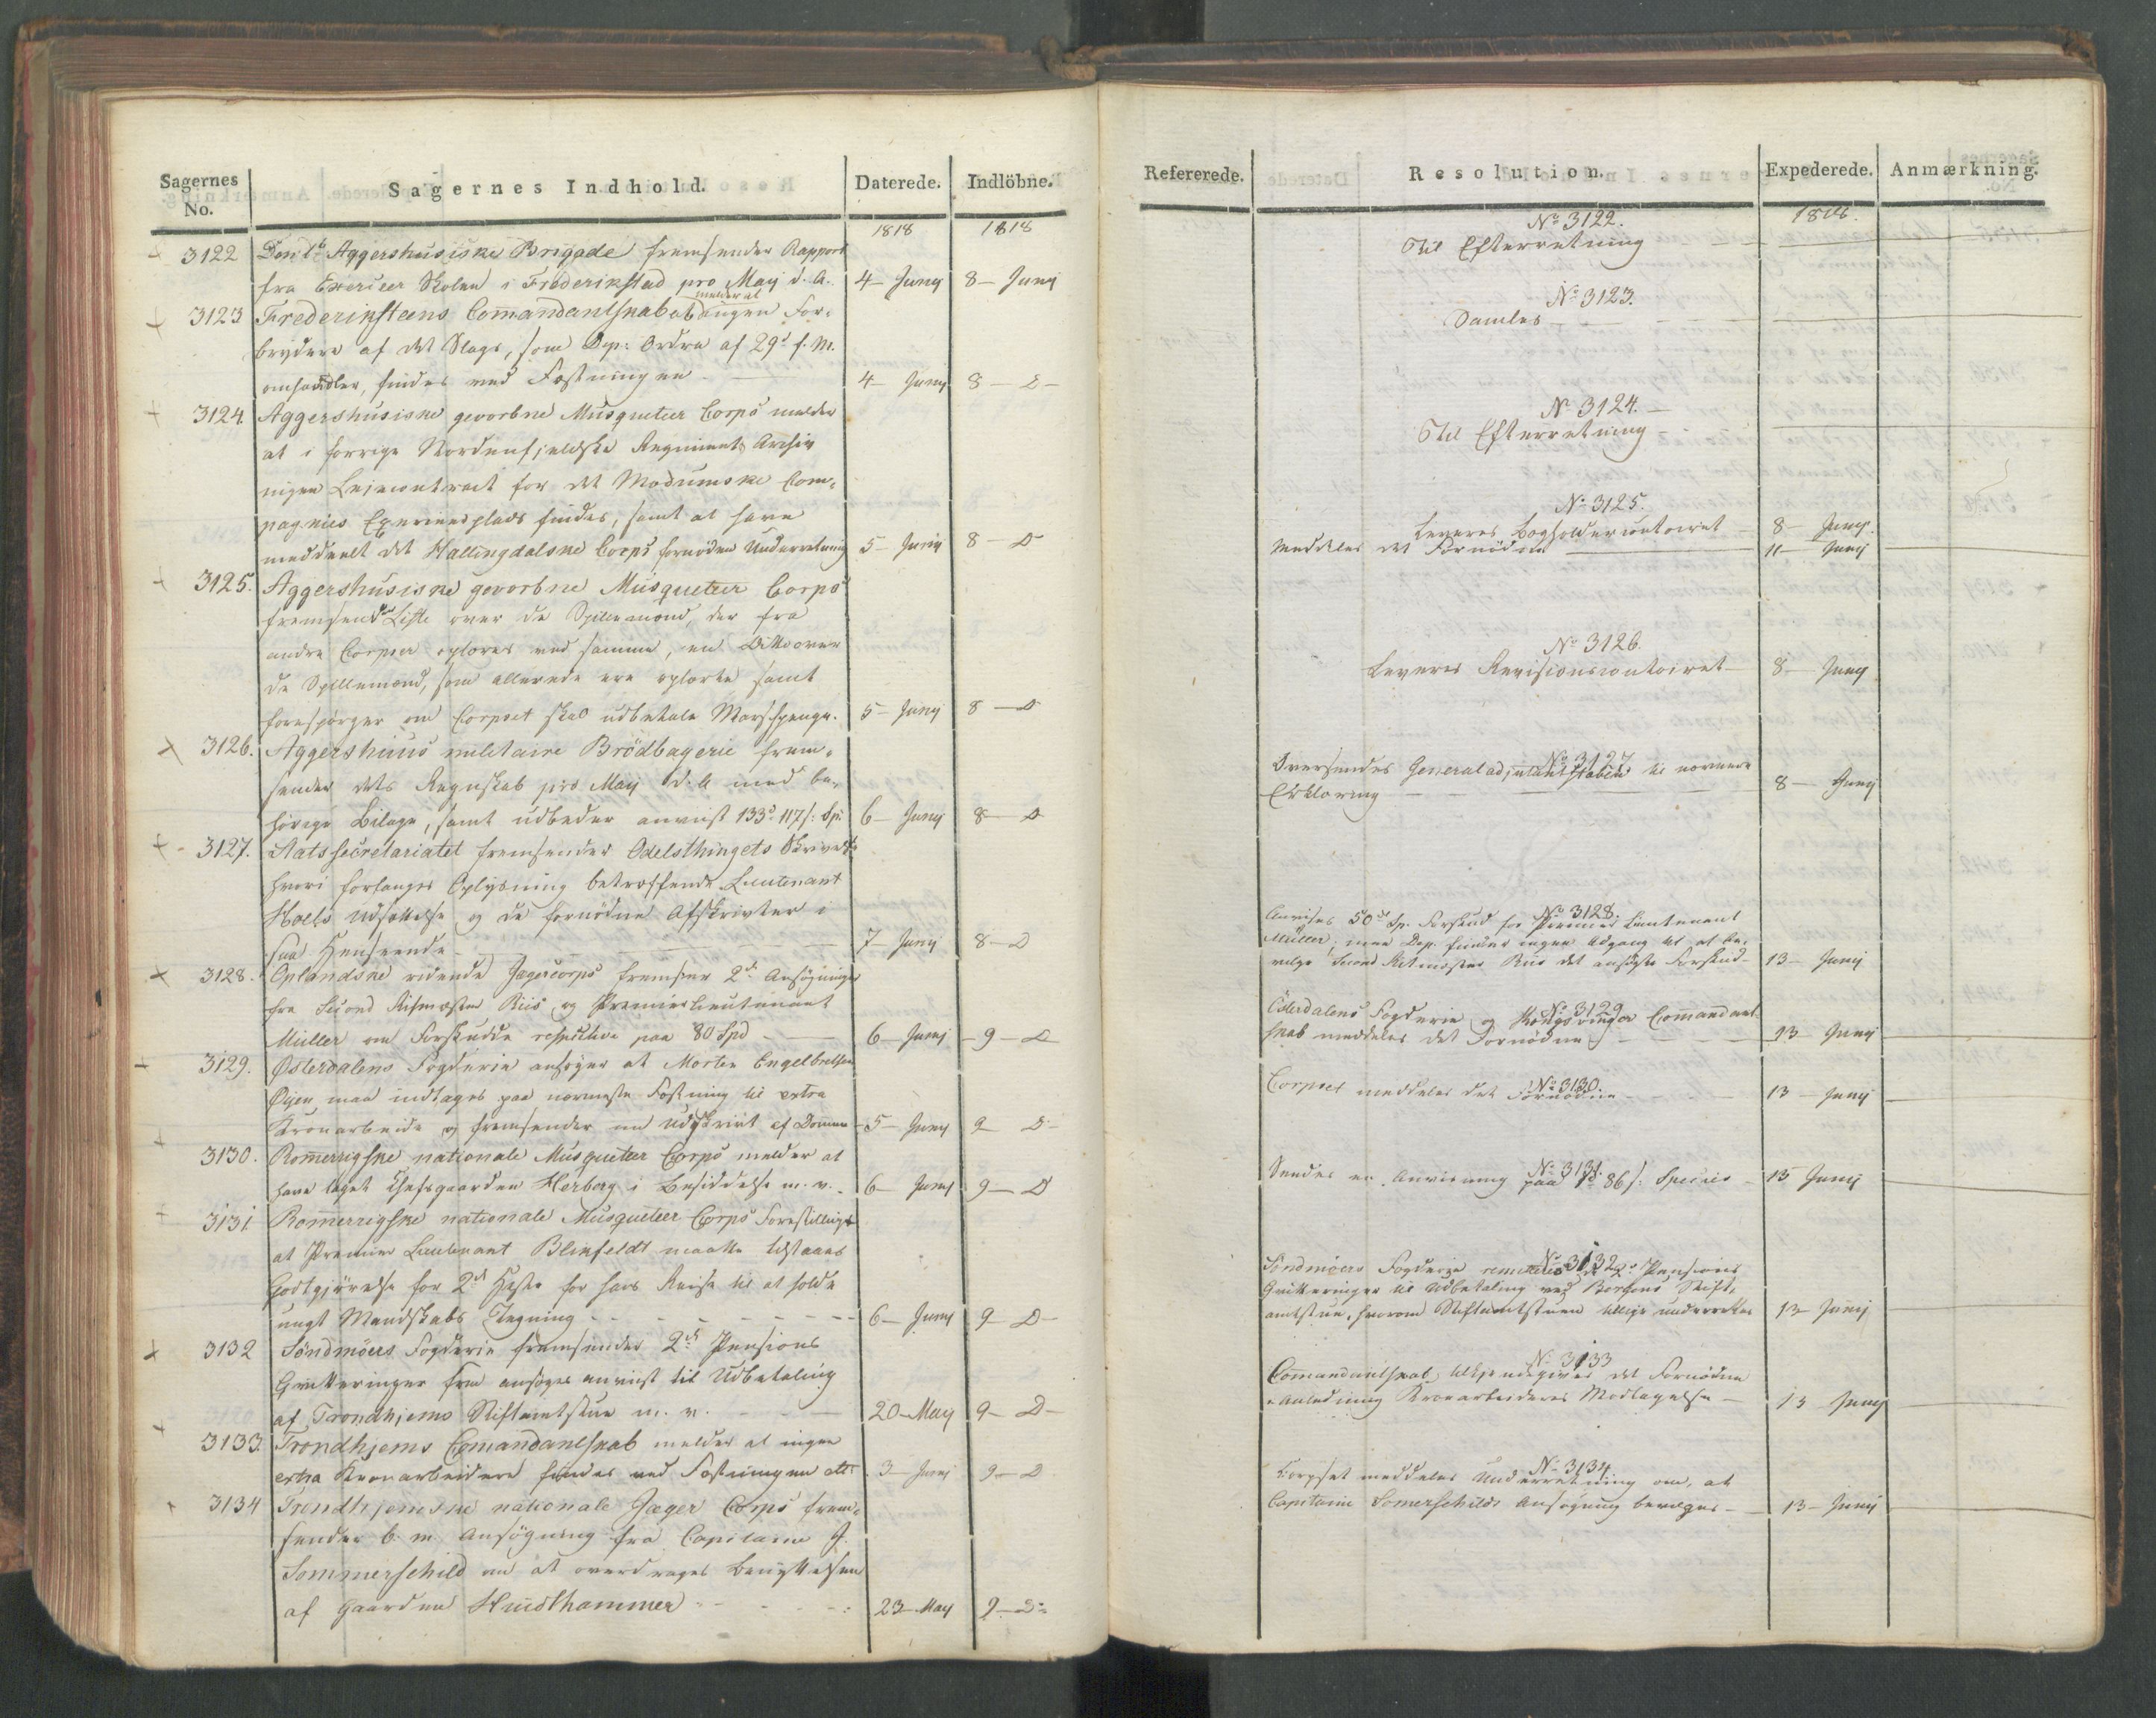 Sagernes No.
Sagernes Indhold.
Daterede.
Indlöbne.
1818
1818
3122 Den 1te Aggershusiske Brigade fremsender Rapport
fra Exerceer Skolen i Frederikstad pro May d. A. 4 - Junij 8 - Junij
3123 Frederiksteens Commandantskab melder at ingen For-
brydere af det Slags, som Dep: Ordre af 29d f. M.
omhandler, findes ved Fæstningen 4 - Junij 8 - D -
3124 Aggershusiske gevorbne Musqueteer Corps melder
at i forrige Nordenfjeldske Regiments Archiv
ingen Leiecontract for det Modumske Com-
pagnies Exerceerplads findes, samt at have
meddeelt det Hallingdalske Corps fornöden Underretning 5 - Junij 8 - D
3125. Aggershusiske gevorbne Musqueteer Corps
fremsender Liste over de Spillemænd, der fra
andre Corpser oplæres ved samme, en Ditto over
de Spillemænd, som allerede ere oplærte samt
forespörger om Corpset skal udbetale Marschpenge. 5 - Junij 8 - D
3126. Aggershuus militaire Brödbagerie frem-
sender dets Regnskab pro May d. A. med be-
hörige Bilage, samt udbeder anviist 133d 117 s: Sp: 6 - Junij 8 - D
3127. Statssecretariatet fremsender Odelsthingets Skrivelse
hvori forlanges Oplysning betræffende Lieutenant
Holls Udsættelse og de fornödne Afskrivter i
saa Henseende 7 - Junij 8 - D
3128. Oplandske ridende Jægercorps fremsender 2de Ansögninger
fra Second Ritmester Riis og Premierlieutenant
Müller om Forskudde respective paa 80 Spd 6 - Junij 9 - D
3129. Østerdalens Fogderie ansöger at Morten Engelbretsen
Øyen maa indtages paa nærmeste Fæstning til extra
Kronarbeide og fremsender en Udskrivt af Dommen 5 - Junij 9 D -
3130. Romerrigske nationale Musqueteer Corps melder at
have taget Chefsgaarden Herberg i Besiddelse m. v. 6 - Junij 9 - D
3131 Romerrigske nationale Musqueteer Corps Forestilling
at Premier Lieutenant Blixfeldt maatte tilstaaes
Godtgjörelse for 2de Heste for hans Reise til at holde
ungt Mandskabs Tegning 6 - Junij 9 - D -
3132 Söndmöers Fogderie fremsender 2de Pensions
Qvitteringer som ansöges anviist til Udbetaling
af Trondhjems Stiftamtstue m. v. 20 - May 9 - D -
3133. Trondhjems Commandantskab melder at ingen
extra Kronarbeidere findes ved Fæstningen 3 - Junij 9 - D
3134 Trondhjemske nationale Jæger Corps frem-
sender b. m. Ansögning fra Capitaine J.
Sommerschild om at overdrages Benyttelsen
af Gaarden Huusthammer 23 - May 9 - D -
Refererede.
Resolution.
Expederede.
Anmærkning.
1818.
No 3122.
Til Efterretning
No 3123.
Samles
No 3124.
Til Efterretning
No 3125.
Leveres Bogholdercontoiret 8 - Junij
Meddeles det Fornödne 11 - Junij
No 3126.
Leveres Revisionscontoiret 8 - Junij
No 3127
Oversendes Generaladjutantstaben til nærmere
Erklæring 8 - Junij
No 3128.
Anvises 50d Sp. Forskud for Premier Lieutenant
Müller; men Dep. finder ingen Adgang til at be-
vilge Second Ritmester Riis det ansögte Forskud 13 - Junij
No 3129
Österdalens Fogderie og Kongsvinger Commandant-
skab meddeles det Fornödne 13 Junij
No 3130.
Corpset meddeles det Fornödne 13 - Junij
No 3131.
Sendes en Anviisning paa 1d 86 s: Species 15 Junij
No 3132
Söndmöers Fogderie remitteres 2de Pensions
Qvitteringer til Udbetaling ved Bergens Stift-
amtstue, hvorom Stiftamtstuen tillige underrettes 13 - Junij
No 3133
Commandantskab tilkjendegives det Fornödne
i Anledning Kronarbeideres Modtagelse 13 - Junij
No 3134
Corpset meddeles Underretning om, at
Capitaine Somerschilds Ansögning bevilges 13 - Junij